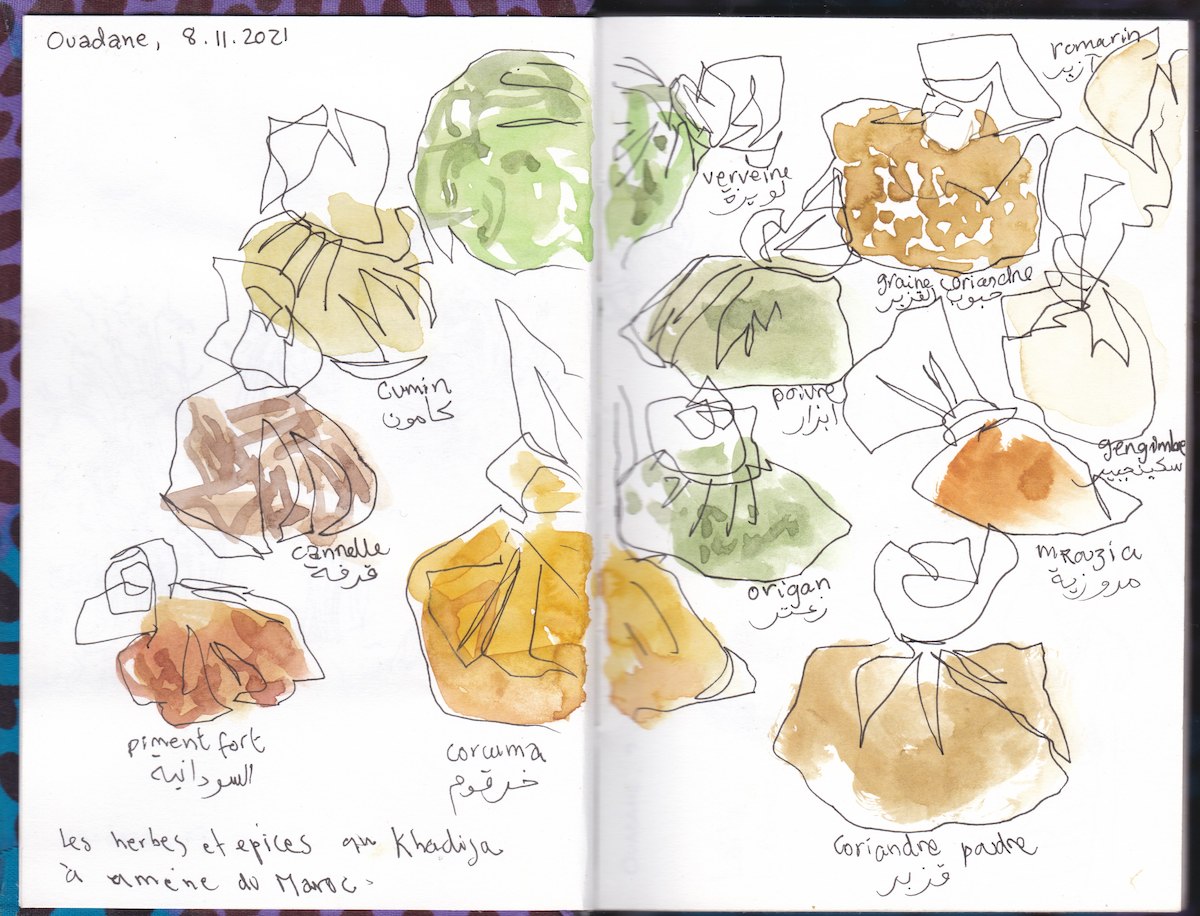 Ouadane, 8.11.2021
cumin
كامون
cannelle
قرفة
piment fort
السودانية
corcuma
خرقوم
Les herbes et epices que Khadija
à amené du Maroc.
romarin
آزير
verveine
لويزة
graine coriandre
حبوب القزبر
poivre
ابزار
gengimbre
سكينجبير
origan
زعتر
mRouzia
مروزية
coriandre poudre
قزبر